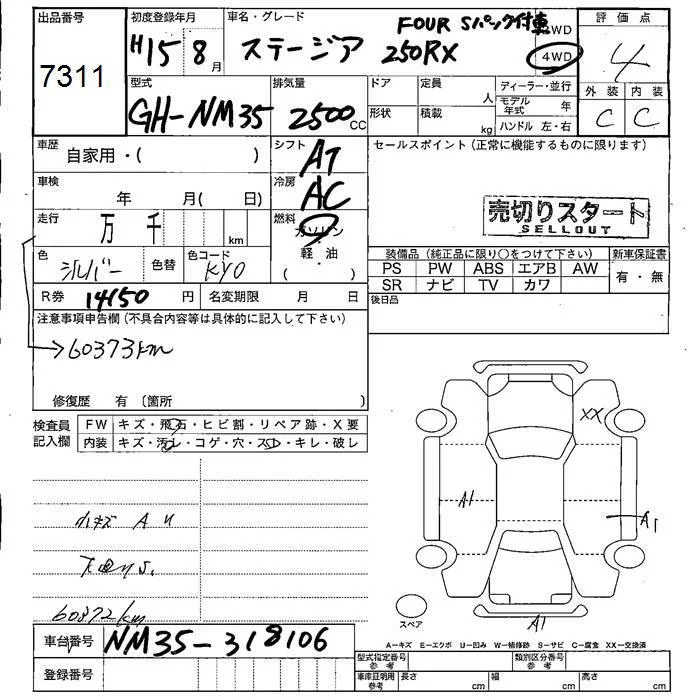 出品番号 初度登録年月 車名・グレード FOUR Sパック付車 評価点
7311 H15 8月 ステージア 250RX 2WD 4WD 4
型式 排気量 ドア 定員 人 ディーラー・並行 外装 内装
GH-NM35 2500cc 形状 積載 kg モデル年式 年 C C
ハンドル 左・右
車歴 自家用・( ) シフト AT セールスポイント(正常に機能するものに限ります)
車検 年 月( 日) 冷房 AC
走行 万 千 km 燃料 ガソリン 軽・油 ( )
売切りスタート
SELLOUT
色 シルバー 色替 色コード KY0
装備品(純正品に限り○をつけて下さい) 新車保証書
PS PW ABS エアB AW 有・無
SR ナビ TV カワ
R券 14150 円 名変期限 月 日 後日品
注意事項申告欄(不具合内容等は具体的に記入して下さい)
60373km
修復歴 有 〔箇所 〕
検査員記入欄 FW キズ・飛石・ヒビ割・リペア跡・X要
内装 キズ・汚レ・コゲ・穴・スレ・キレ・破レ
XX
A1
A1
小キズ A U
下廻りS.
60372km
スペア
A1
車台番号 NM35-318106
A−キズ E−エクボ U−凹み W−補修跡 S−サビ C−腐食 XX−交換済
登録番号
型式指定番号 参考 類別区分番号 参考
車庫証明用 参考 長さ cm 幅 cm 高さ cm